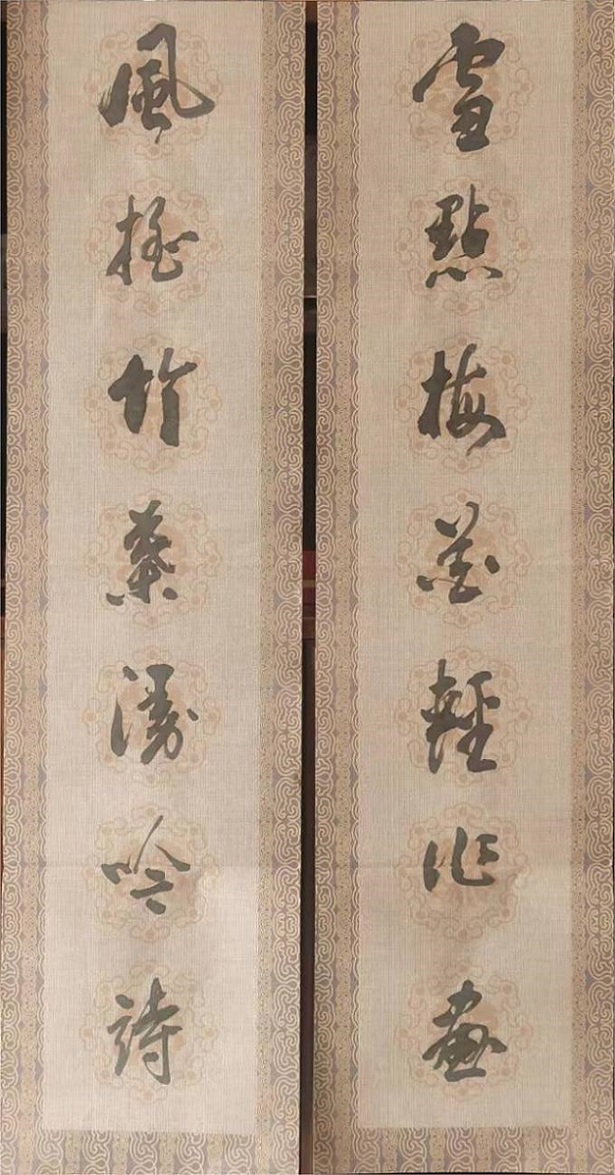 雪點梅花輕作畫
風搖竹葉漫吟詩